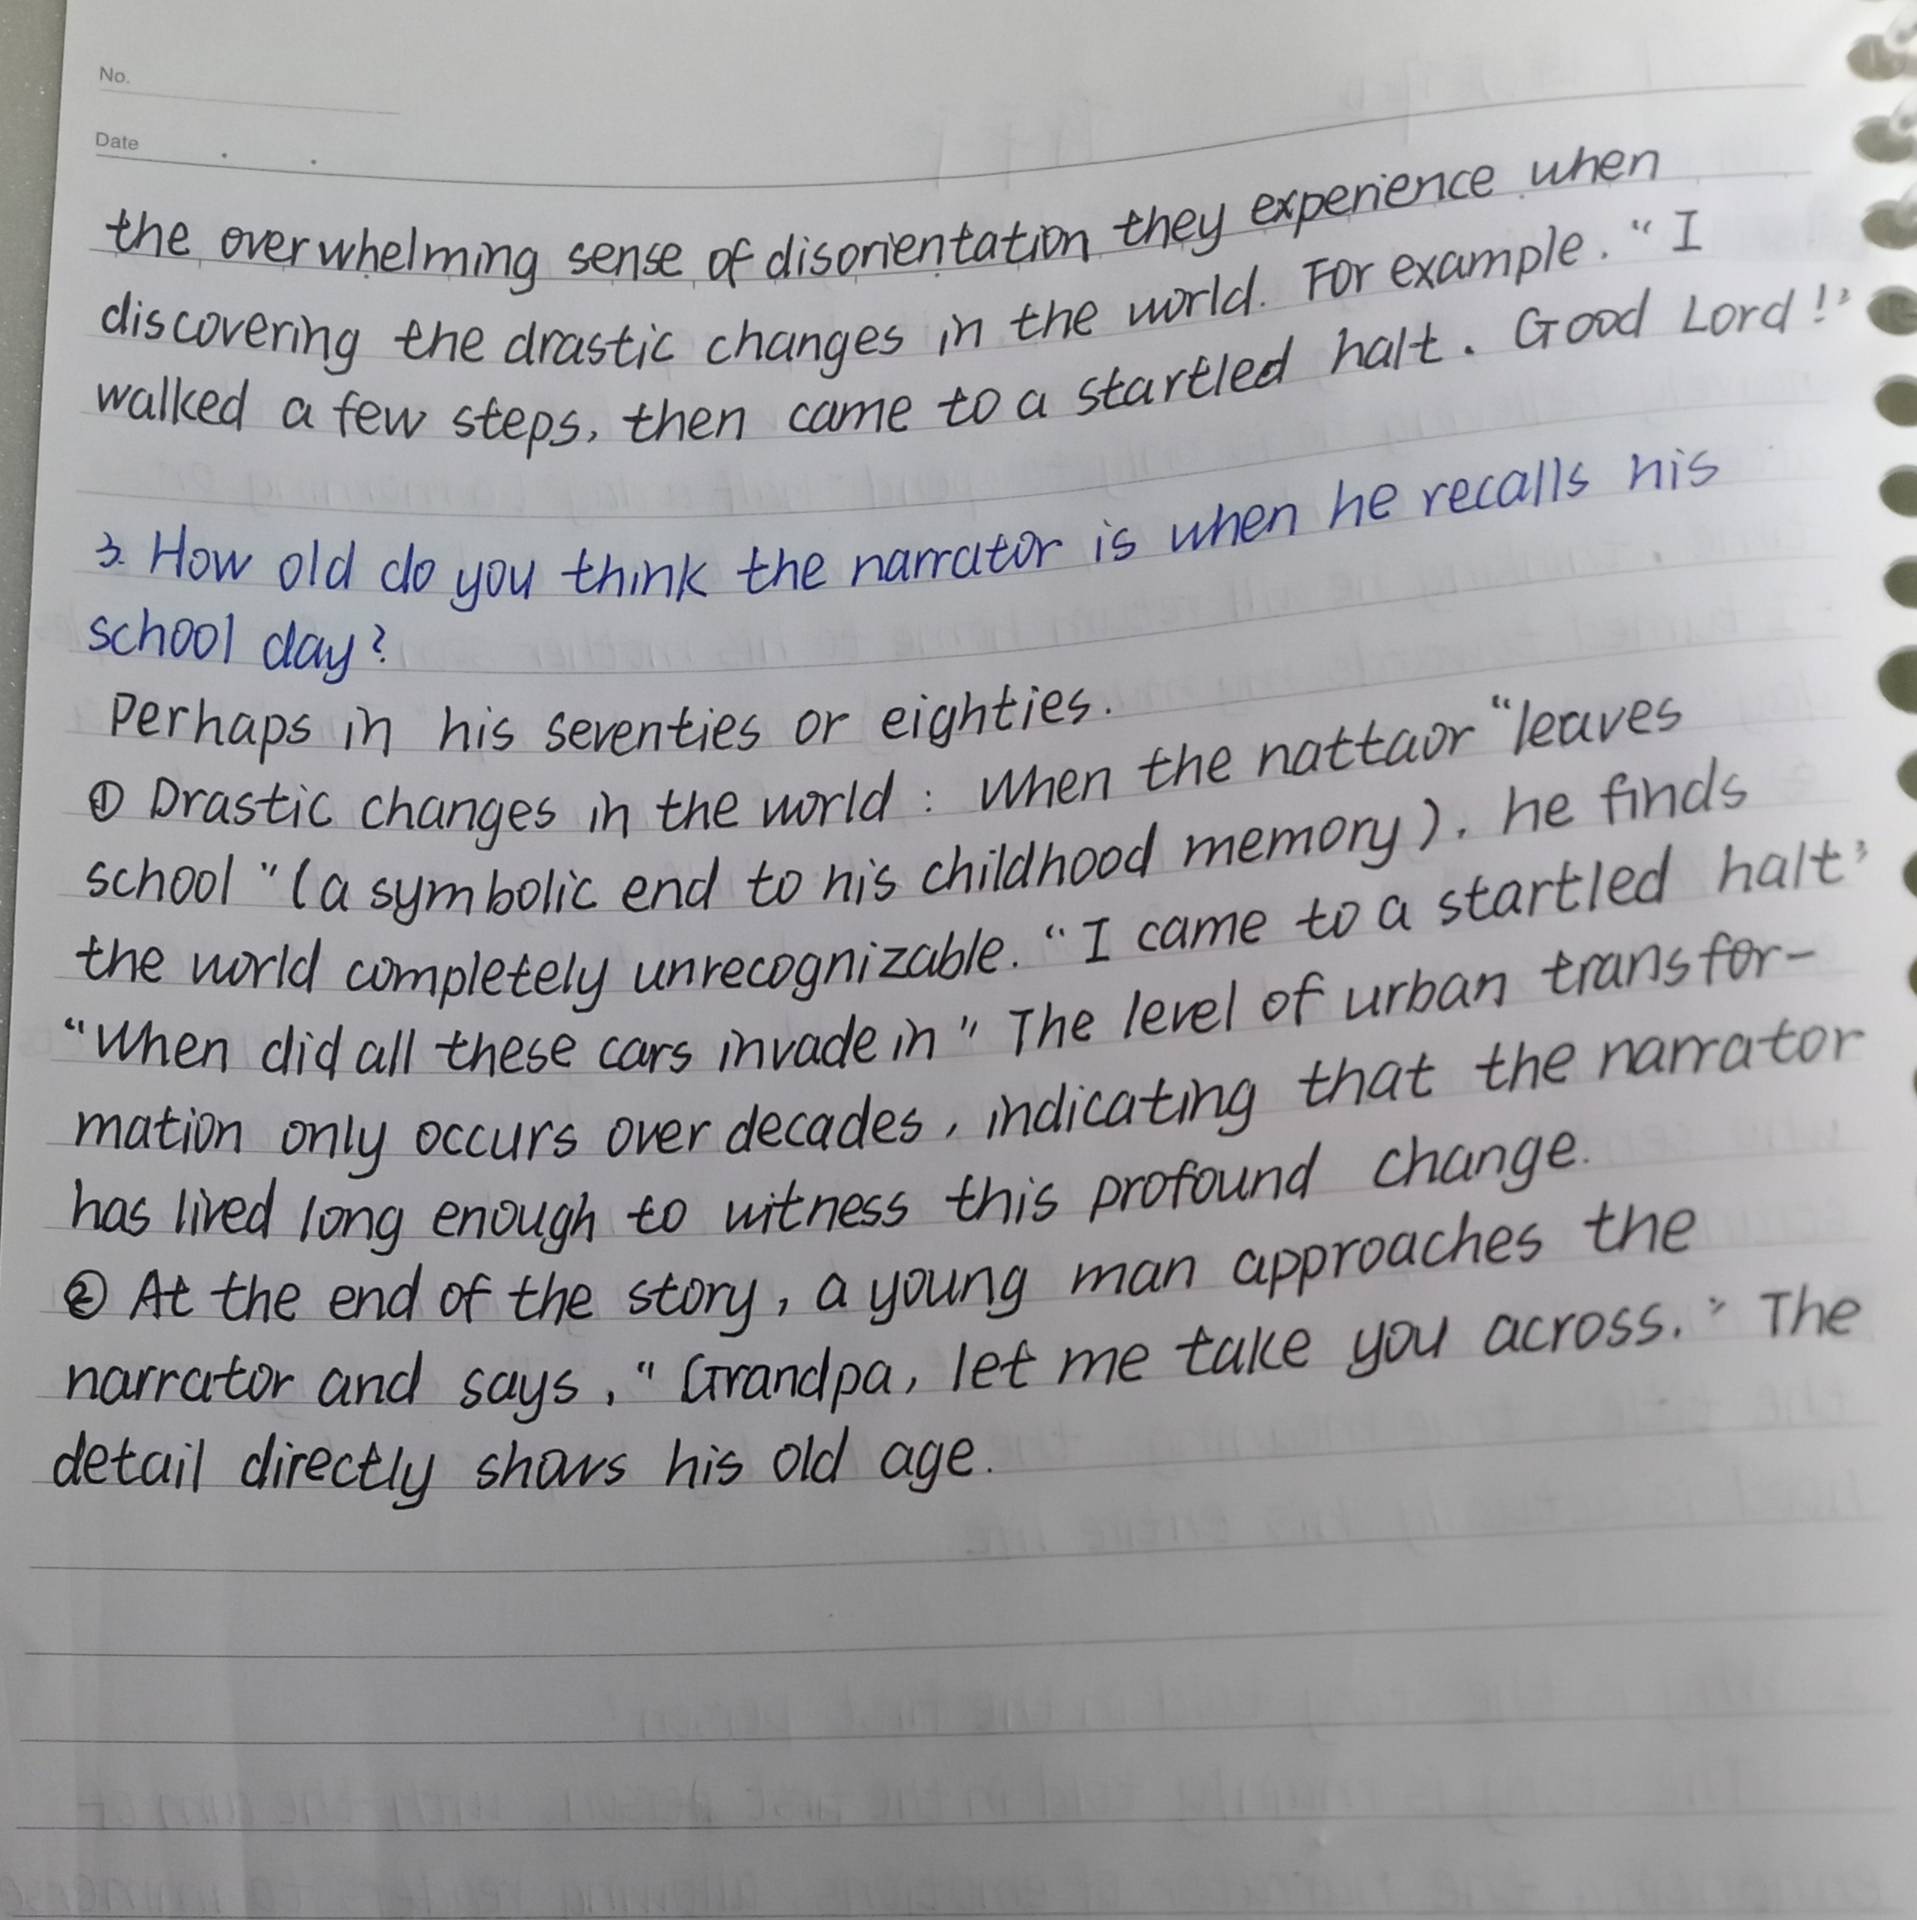 No.
Date
the overwhelming sense of disorientation they experience when
discovering the drastic changes in the world. For example. "I
walked a few steps, then came to a startled halt. Good Lord!"
3. How old do you think the narrator is when he recalls his
school day?
Perhaps in his seventies or eighties.
① Drastic changes in the world: When the nattaor "leaves
school" (a symbolic end to his childhood memory). he finds
the world completely unrecognizable. "I came to a startled halt"
"When did all these cars invade in" The level of urban transfor-
mation only occurs over decades, indicating that the narrator
has lived long enough to witness this profound change.
② At the end of the story, a young man approaches the
narrator and says, "Grandpa, let me take you across." The
detail directly shows his old age.